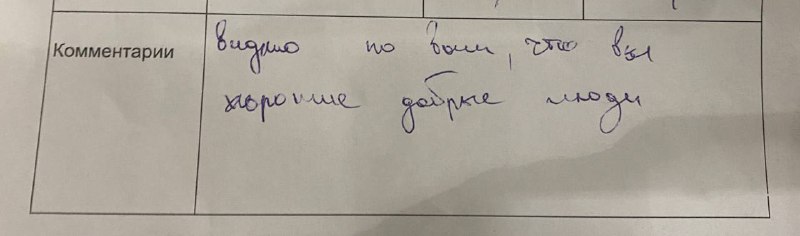 Комментарии
видно по вам, что вы
хорошие добрые люди